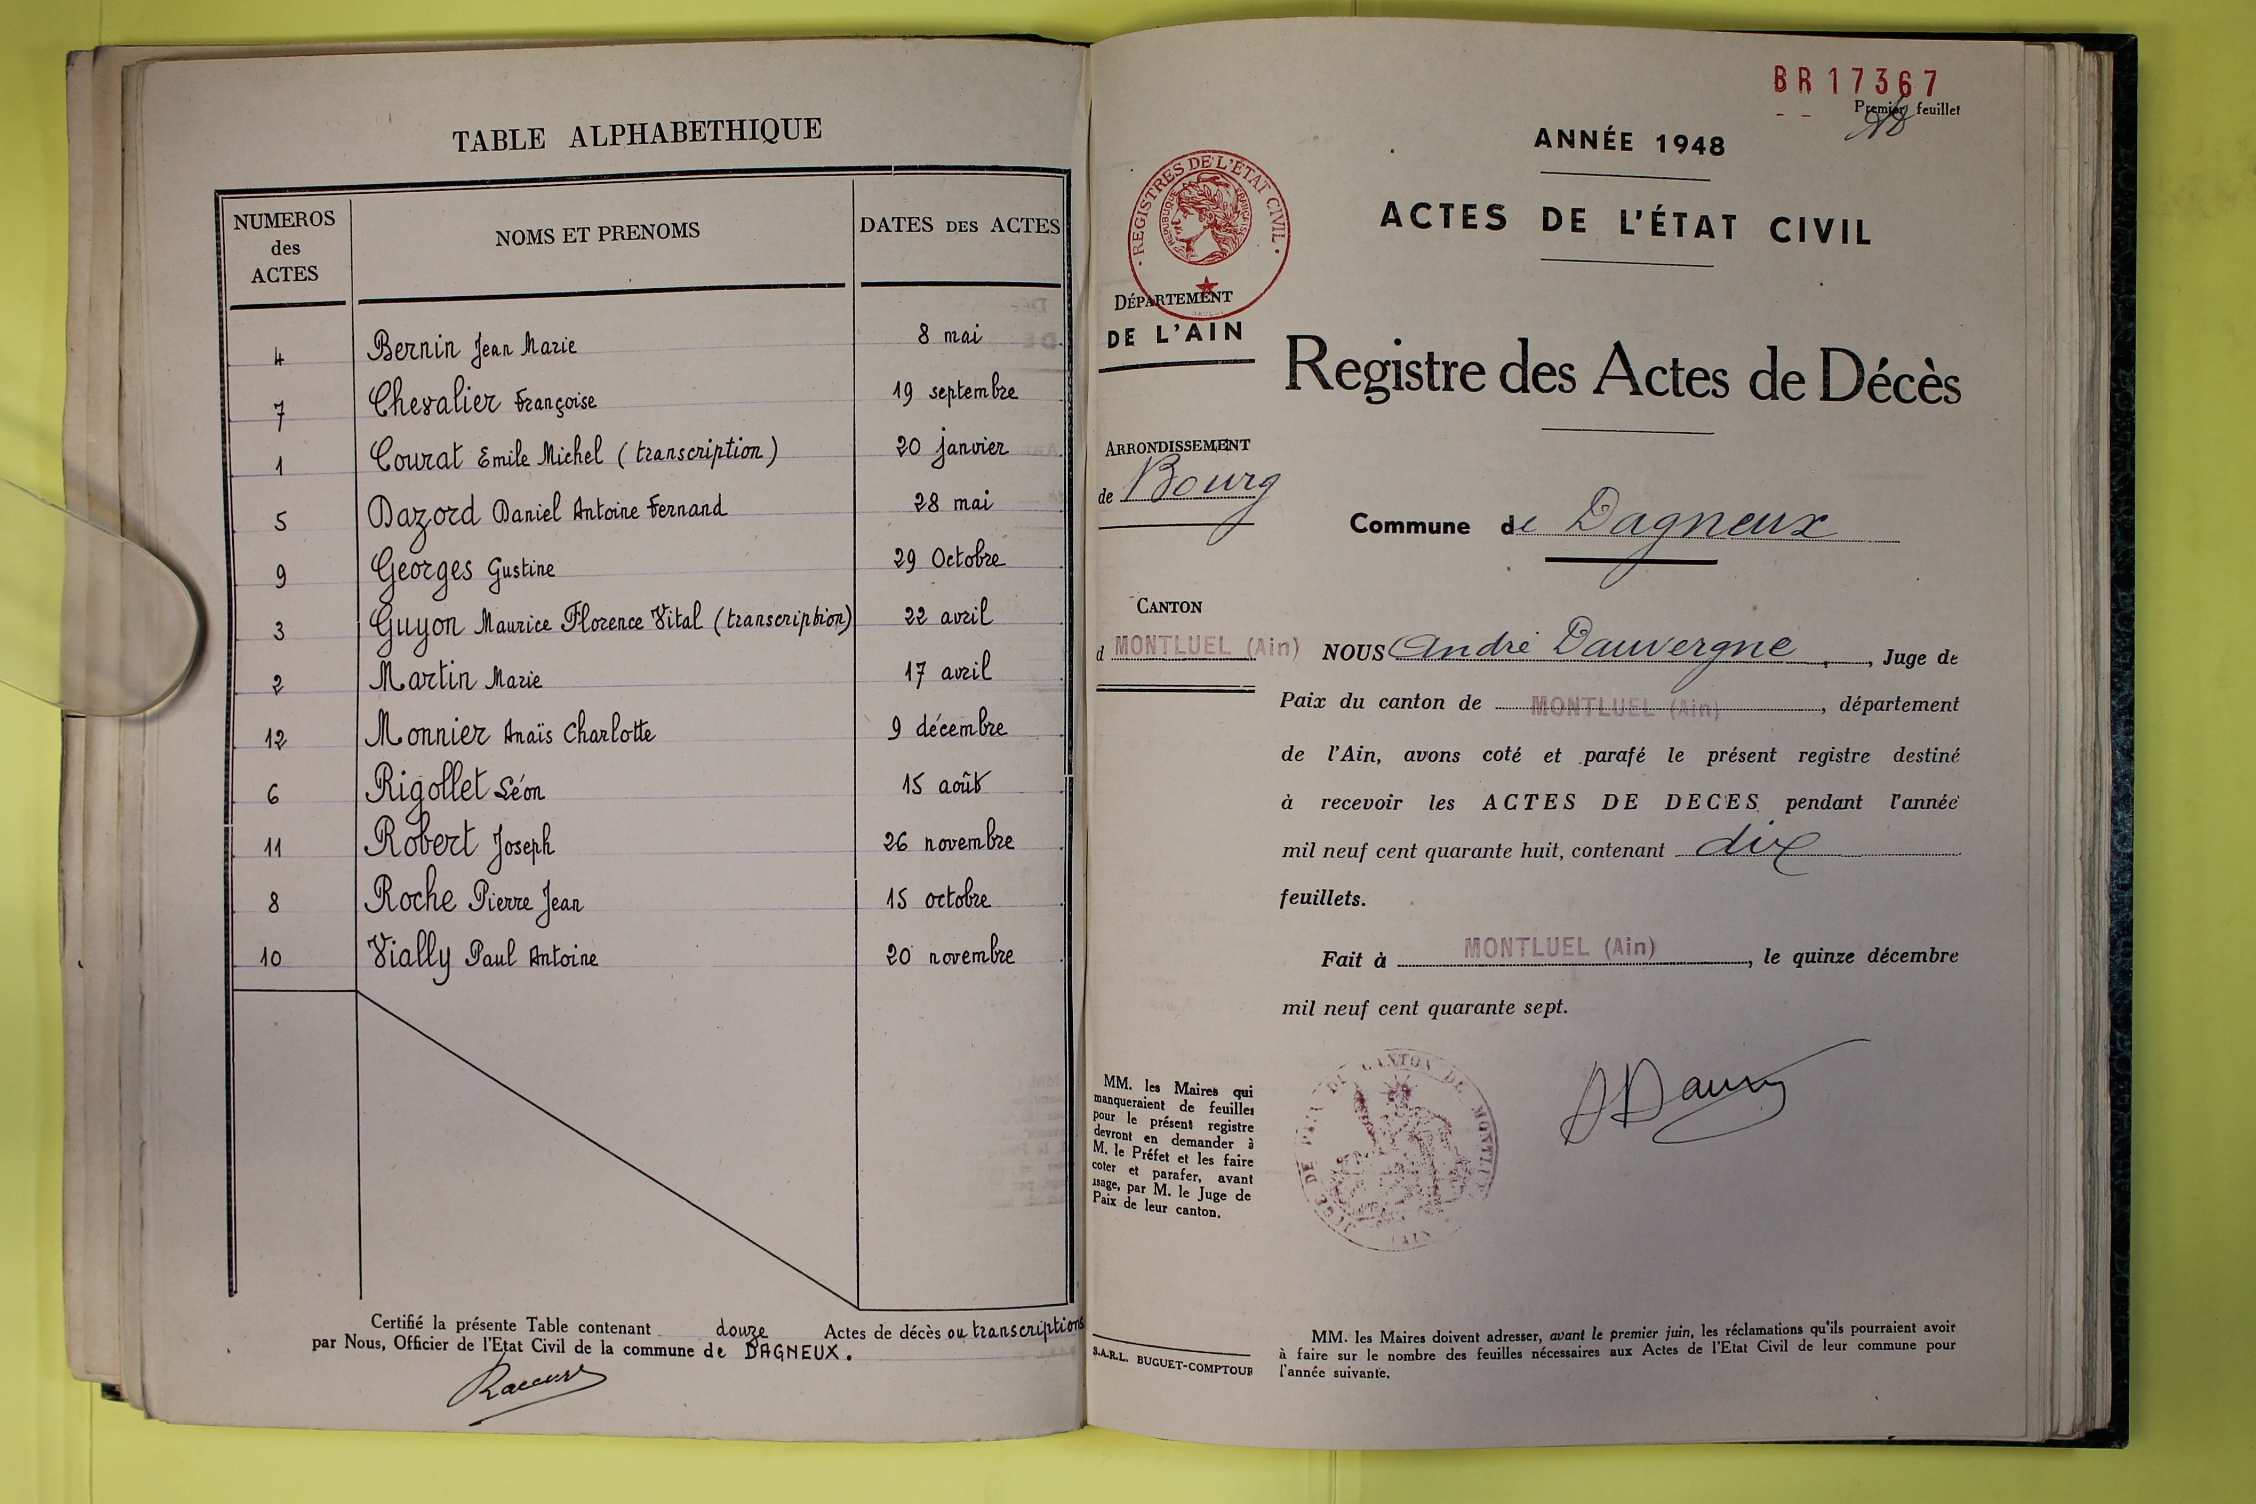 TABLE ALPHABETHIQUE
NUMEROS des ACTES NOMS ET PRENOMS DATES DES ACTES
4 Bernin Jean Marie 8 mai
7 Chevalier Françoise 19 septembre
1 Courat Emile Michel (transcription) 20 janvier
5 Dazord Daniel Antoine Fernand 28 mai
9 Georges Gustine 29 Octobre
3 Guyon Maurice Florence Vital (transcription) 22 avril
2 Martin Marie 17 avril
12 Monnier Anaïs Charlotte 9 décembre
6 Rigollet Léon 15 août
11 Robert Joseph 26 novembre
8 Roche Pierre Jean 15 octobre
10 Vially Paul Antoine 20 novembre
Certifié la présente Table contenant douze Actes de décès ou transcriptions
par Nous, Officier de l'Etat Civil de la commune de DAGNEUX.
BR17367
Premier feuillet
ANNÉE 1948
ACTES DE L'ÉTAT CIVIL
· REGISTRES DE L'ETAT CIVIL ·
REPUBLIQUE FRANÇAISE
DÉPARTEMENT
DE L'AIN
Registre des Actes de Décès
ARRONDISSEMENT
de Bourg
Commune de Dagneux
CANTON
d MONTLUEL (Ain)
NOUS André Dauvergne, Juge de
Paix du canton de MONTLUEL (Ain), département
de l'Ain, avons coté et parafé le présent registre destiné
à recevoir les ACTES DE DECES pendant l'année
mil neuf cent quarante huit, contenant dix
feuillets.
Fait à MONTLUEL (Ain), le quinze décembre
mil neuf cent quarante sept.
MM. les Maires qui
manqueraient de feuilles
pour le présent registre
devront en demander à
M. le Préfet et les faire
coter et parafer, avant
usage, par M. le Juge de
Paix de leur canton.
S.A.R.L. BUGUET-COMPTOUR
MM. les Maires doivent adresser, avant le premier juin, les réclamations qu'ils pourraient avoir
à faire sur le nombre des feuilles nécessaires aux Actes de l'Etat Civil de leur commune pour
l'année suivante.